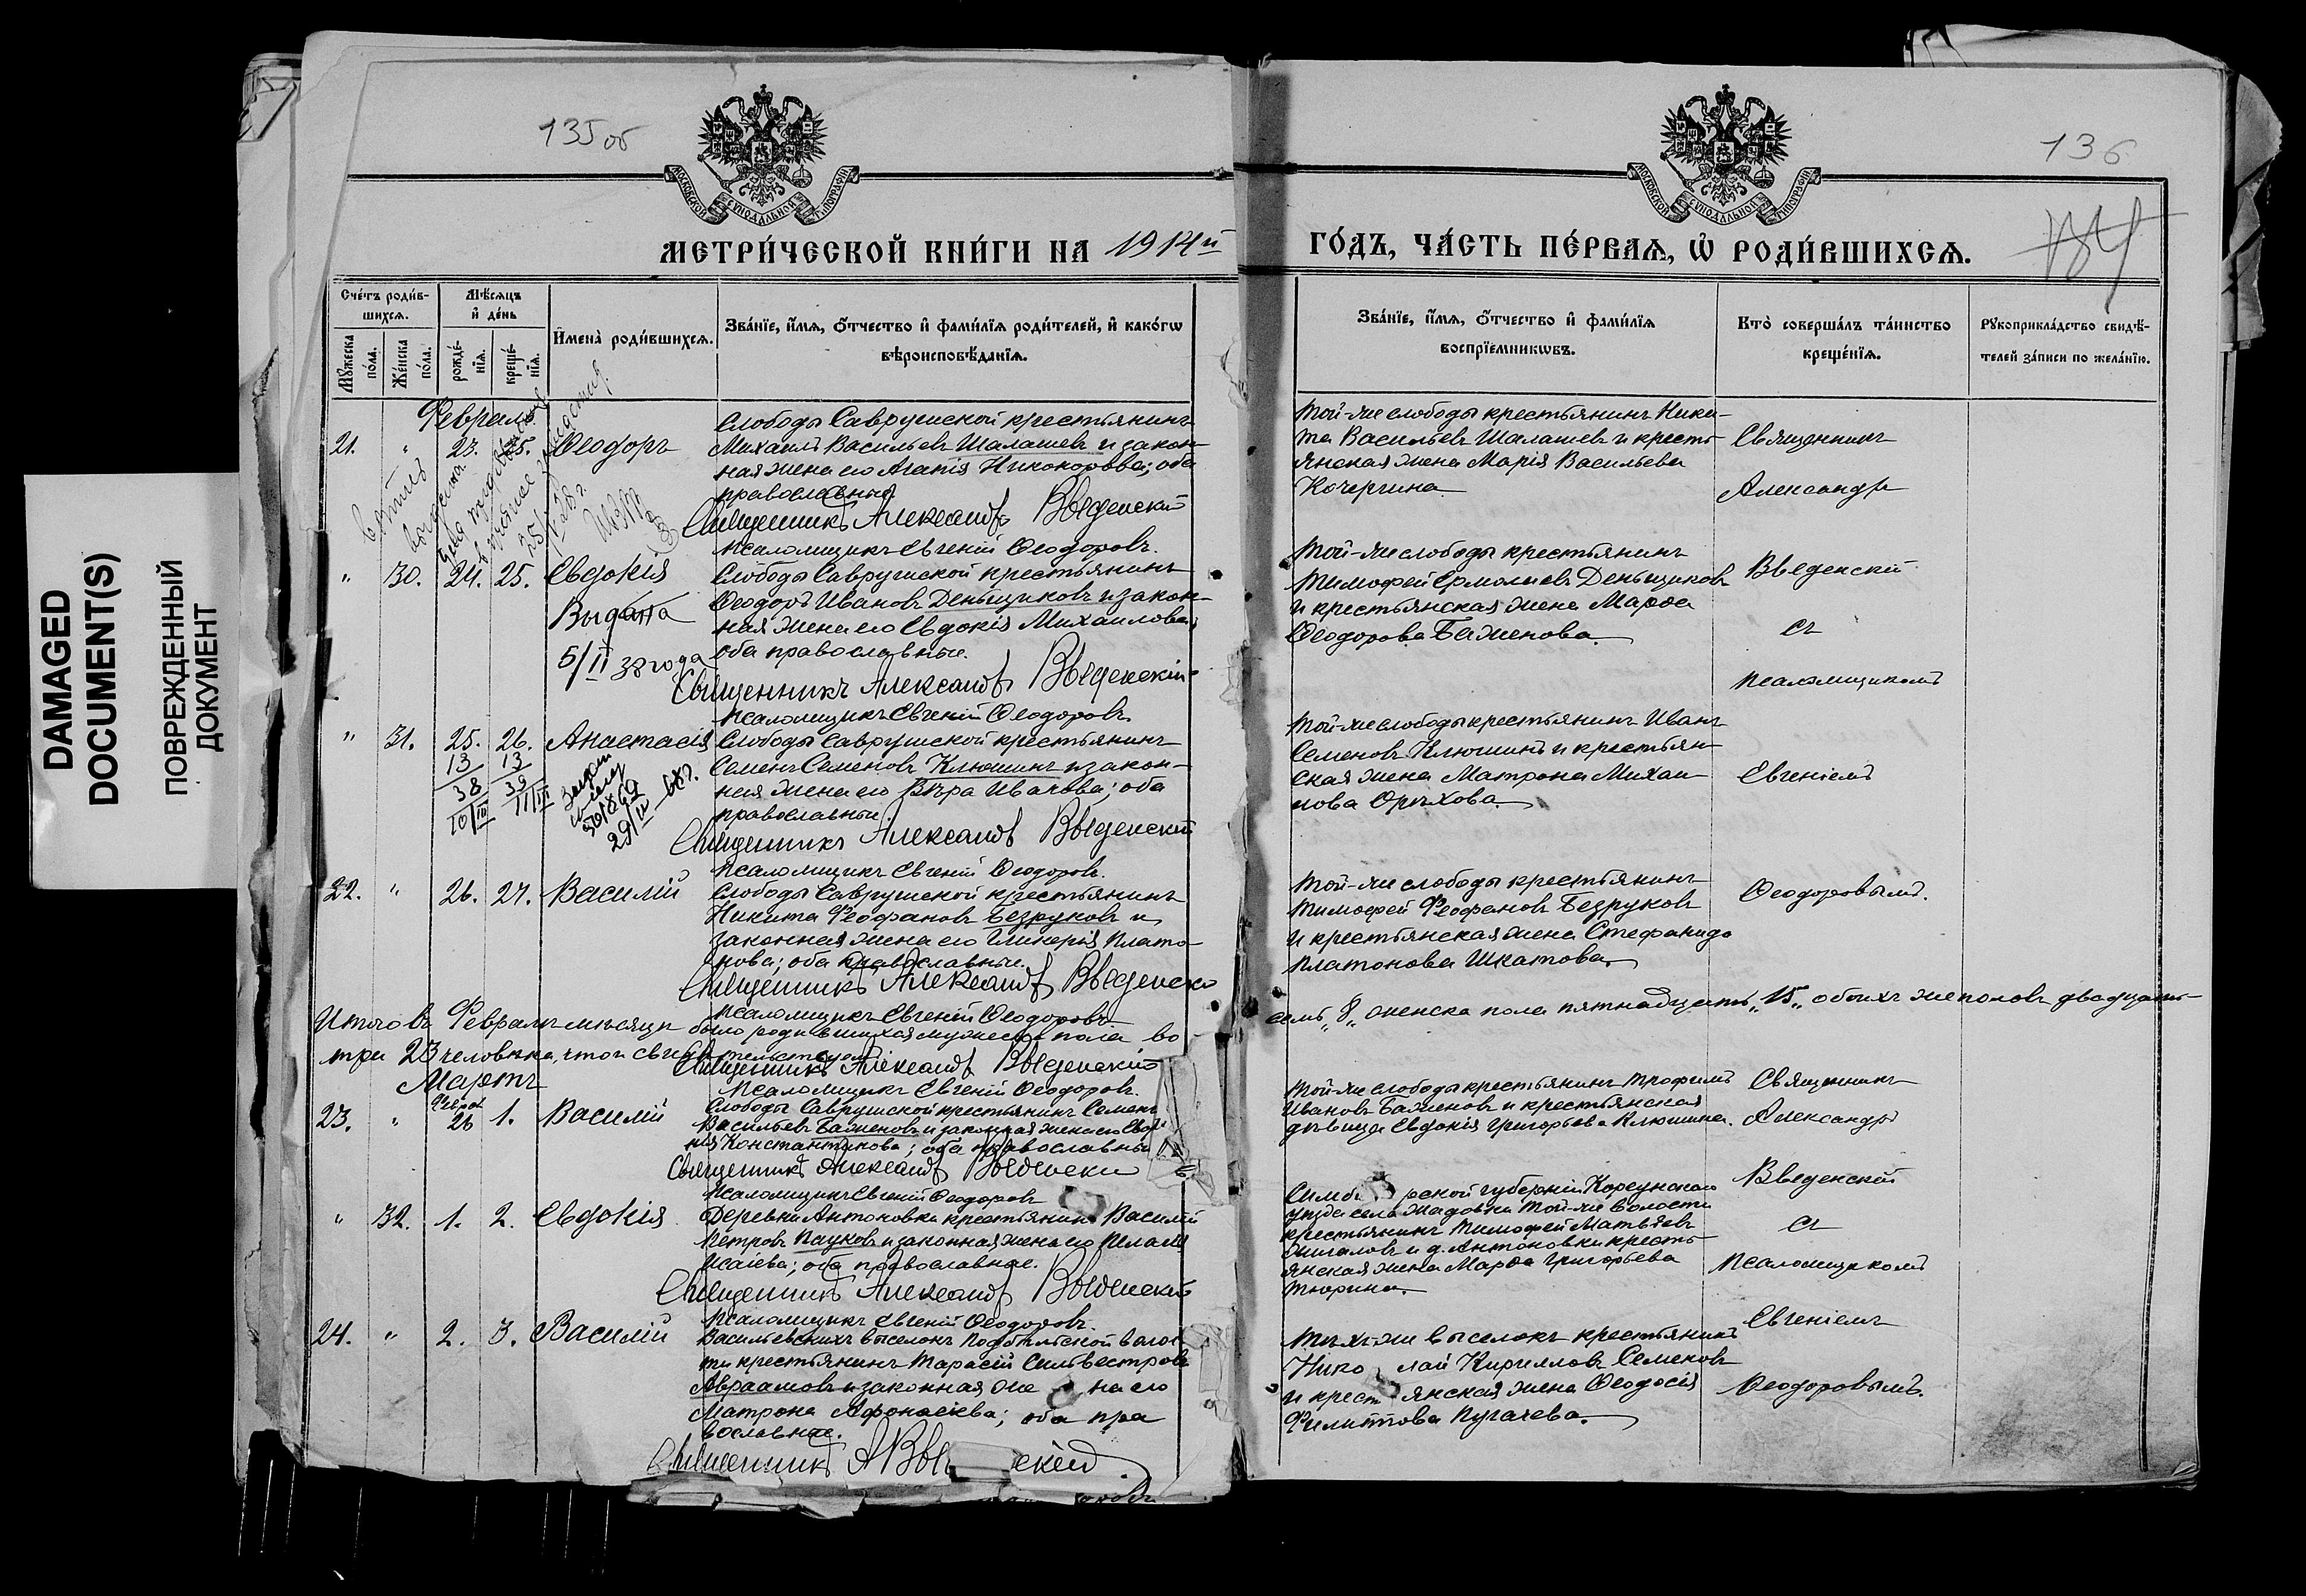 DAMAGED
DOCUMENT(S)
ПОВРЕЖДЕННЫЙ
ДОКУМЕНТ
135 об
136
МОСКОВСКОЙ СѴНОДАЛЬНОЙ ТИПОГРАФІИ
МОСКОВСКОЙ СѴНОДАЛЬНОЙ ТИПОГРАФІИ
МЕТРИ́ЧЕСКОЙ КНИ́ГИ НА 1914й
ГО́ДЪ, ЧА́СТЬ ПЕ́РВАѦ, Ѡ РОДИ́ВШИХСѦ.
Сче́тъ роди́в-
шихсѧ.
Мꙋжеска по́ла.
Же́нска по́ла.
Мѣ́сѧцъ и де́нь
рожде́-
нїѧ.
креще́-
нїѧ.
Имена̀ роди́вшихсѧ.
Зва́нїе, и́мѧ, о́тчество и фами́лїѧ роди́телей, и како́гѡ
вѣроисповѣ́данїѧ.
Зва́нїе, и́мѧ, о́тчество и фами́лїѧ
воспрїе́мникѡвъ.
Кто̀ соверша́лъ та́инство
креще́нїѧ.
Рꙋкоприкла́дство свидѣ́-
телей за́писи по жела́нїю.
Февраль
21. " 23. 25. Ѳеодоръ
Слободы Саврушской крестьянинъ
Михаилъ Васильевъ Шалашевъ и закон-
ная жена его Агапія Никонорова; оба
православные
Священникъ Александръ Введенскій
Псаломщикъ Евгеній Ѳеодоровъ.
Той-же слободы крестьянинъ Ники-
та Васильевъ Шалашевъ и кресть-
янская жена Марія Васильева
Кочергина.
Священникъ
Александръ
Введенскій
съ
псаломщикомъ
Евгеніемъ
Ѳеодоровымъ.
" 30. 24. 25. Евдокія
Выдана
5/II 38 года
Слободы Саврушской крестьянинъ
Ѳеодоръ Ивановъ Деньщиковъ и закон-
ная жена его Евдокія Михаилова;
оба православные.
Священникъ Александръ Введенскій
Псаломщикъ Евгеній Ѳеодоровъ.
Той-же слободы крестьянинъ
Тимофей Ермолаевъ Деньщиковъ
и крестьянская жена Марѳа
Ѳеодорова Баженова.
" 31. 25. 26. Анастасія
13 13
38 39
10/III 11/III
29/IV
Слободы Саврушской крестьянинъ
Семенъ Семеновъ Клюшинъ и закон-
ная жена его Вѣра Иванова; оба
православные.
Священникъ Александръ Введенскій
Псаломщикъ Евгеній Ѳеодоровъ.
Той-же слободы крестьянинъ Иванъ
Семеновъ Клюшинъ и крестьян-
ская жена Матрона Михаи-
лова Орѣхова.
22. " 26. 27. Василій
Слободы Саврушской крестьянинъ
Никита Феофановъ Безруковъ и
законная жена его Гликерія Плато-
нова; оба православные.
Священникъ Александръ Введенскій
Псаломщикъ Евгеній Ѳеодоровъ
Той-же слободы крестьянинъ
Тимофей Феофановъ Безруковъ
и крестьянская жена Стефанида
Платонова Шкатова.
Итого въ Февралѣ мѣсяцѣ было родившихся мужеска пола во
семь „8„ женска пола пятнадцать „15„ обоихъ же половъ двадцать
три 23 человѣка, что и свидѣтельствуемъ
Священникъ Александръ Введенскій
Псаломщикъ Евгеній Ѳеодоровъ.
Мартъ
23. " Февраля 26 1. Василій
Слободы Саврушской крестьянинъ Семенъ
Васильевъ Баженовъ и законная жена его Евдо-
кія Константинова; оба православные
Священникъ Александръ Введенскій
Псаломщикъ Евгеній Ѳеодоровъ
Той-же слободы крестьянинъ Трофимъ
Ивановъ Баженовъ и крестьянская
дѣвица Евдокія Григорьева Клюшина.
Священникъ
Александръ
Введенскій
съ
псаломщикомъ
Евгеніемъ
Ѳеодоровымъ.
" 32. 1. 2. Евдокія
Деревни Антоновки крестьянинъ Василій
Петровъ Пауковъ и законная жена его Пелагія
Исаіева; оба православные.
Священникъ Александръ Введенскій
Псаломщикъ Евгеній Ѳеодоровъ.
Симбирской губерніи Корсунскаго
уѣзда села Жадовки той-же волости
крестьянинъ Тимофей Матвѣевъ
Жигаловъ и д. Антоновки кресть-
янская жена Марѳа Григорьева
Тюрина.
24. " 2. 3. Василій
Васильевскихъ выселокъ Подбѣльской волос-
ти крестьянинъ Тарасій Сильвестровъ
Авраамовъ и законная жена его
Матрона Афонасіева; оба пра
вославные.
Священникъ А Введенскій
Тѣхъ-же выселокъ крестьянинъ
Николай Кирилловъ Семеновъ
и крестьянская жена Ѳеодосія
Филиппова Пугачева.